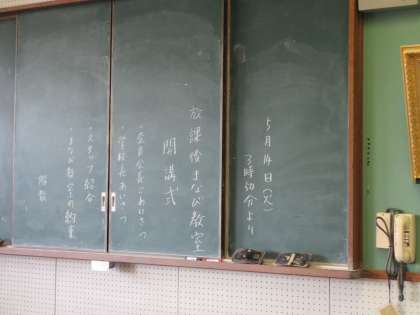 5月14日(火)
3時50分より
放課後まなび教室
開講式
・会長さんごあいさつ
・学校長あいさつ
・スタッフ紹介
・まなび教室の約束
解散